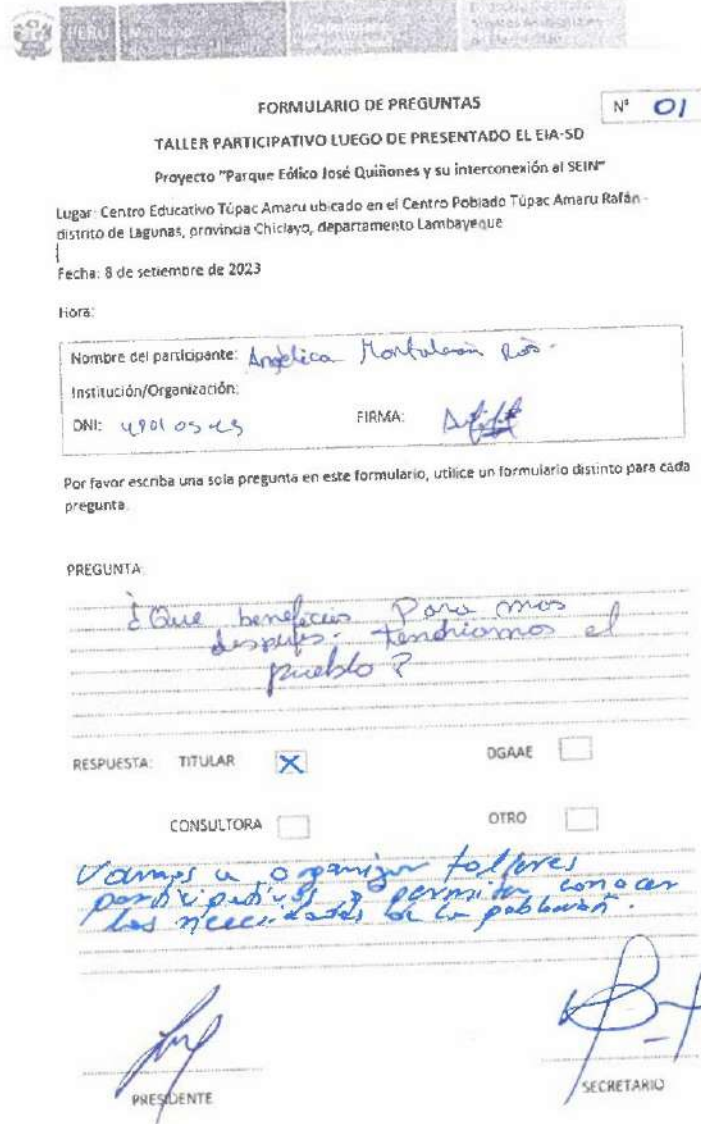 PERÚ
FORMULARIO DE PREGUNTAS
Nº 01
TALLER PARTICIPATIVO LUEGO DE PRESENTADO EL EIA-SD
Proyecto "Parque Eólico José Quiñones y su interconexión al SEIN"
Lugar: Centro Educativo Túpac Amaru ubicado en el Centro Poblado Túpac Amaru Rafán -
distrito de Lagunas, provincia Chiclayo, departamento Lambayeque
Fecha: 8 de setiembre de 2023
Hora:
Nombre del participante: Angelica
Institución/Organización:
DNI: FIRMA:
Por favor escriba una sola pregunta en este formulario, utilice un formulario distinto para cada
pregunta.
PREGUNTA:
¿Que beneficios Para mas
despues. tendriamos el
pueblo?
RESPUESTA: TITULAR X DGAAE
CONSULTORA OTRO
Vamos a organizar talleres
participativos y permitir conocer
las necesidades de la poblacion.
PRESIDENTE SECRETARIO